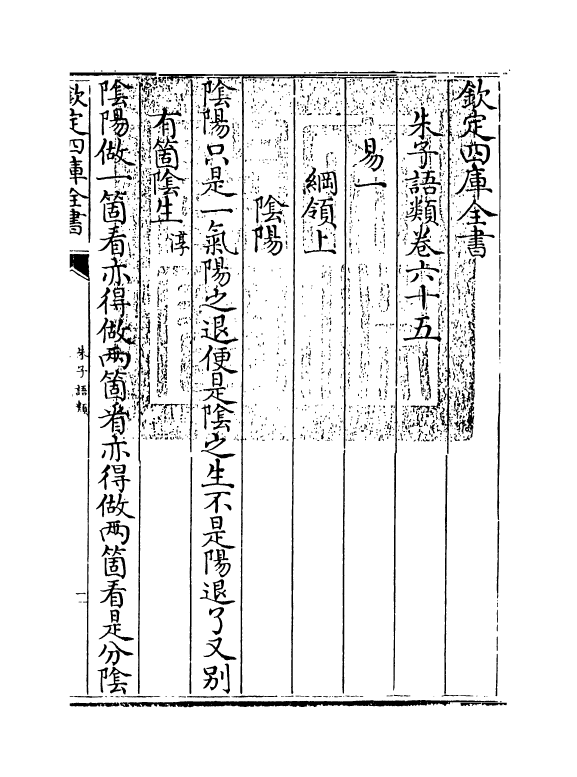 欽定四庫全書
朱子語類卷六十五
易一
綱領上
陰陽
陰陽只是一氣陽之退便是陰之生不是陽退了又别
有箇陰生淳
陰陽做一箇看亦得做兩箇看亦得做兩箇看是分陰
欽定四庫全書
朱子語類
一